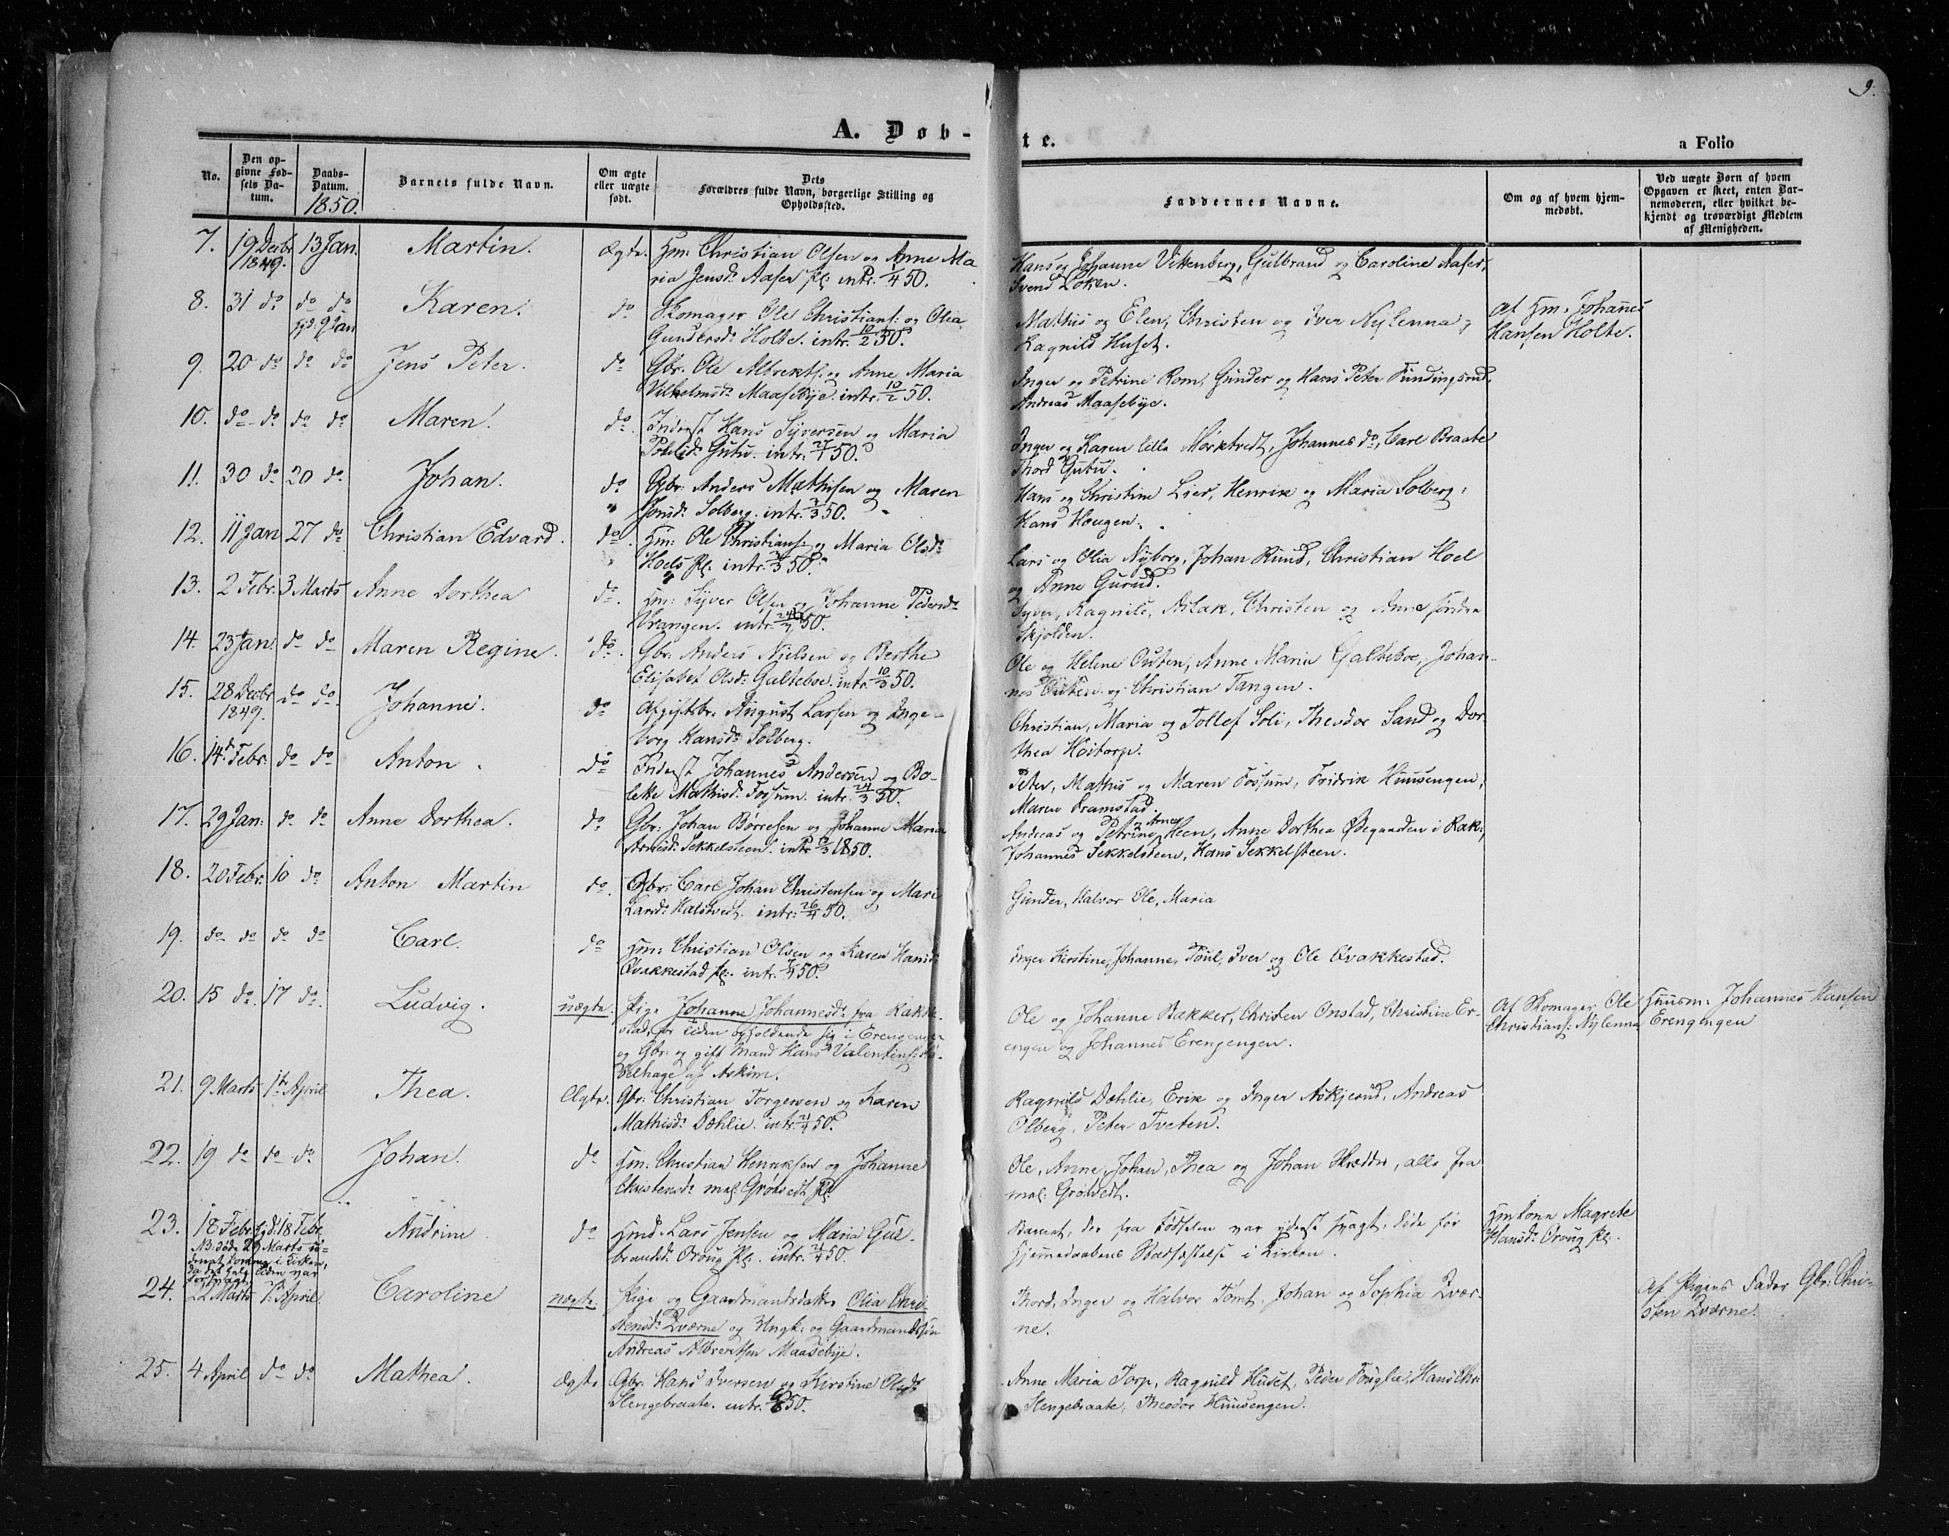 9.
A. Døb-
te.
a Folio
No.
Den op-
givne Fød-
sels Da-
tum.
Daabs-
Datum.
1850.
Barnets fulde Navn.
Om ægte
eller uægte
født.
Dets
Forældres fulde Navn, borgerlige Stilling og
Opholdssted.
Faddernes Navne.
Om og af hvem hjem-
medøbt.
Ved uægte Børn af hvem
Opgaven er skeet, enten Bar-
nemoderen, eller hvilket be-
kjendt og troværdigt Medlem
af Menigheden.
7. 19 Decbr 13 Jan. Martin. Ægte. Hm: Christian Olsen og Anne Ma
1849. ria Jensd: Aaser pl: intr. 1/4 50.
Hans og Johanne Vittenberg, Gulbrand og Caroline Aaser,
Svend Løken.
8. 31 do do do Karen. do Skomager Ole Christians: og Olia
hjd. 9 Jan Gundersd: Holte. intr. 10/2 50.
Mathis og Elen, Christen og Iver Nylenna,
Ragnild Huset.
af Hm: Johannes
Hansen Holte.
9. 20 do do do Jens Peter. do Gbr. Ole Albrekts: og Anne Maria
Vilhelmsd: Maasebye. intr. 10/2 50.
Inger og Petrine Rom, Gunder og Hans Peter Fundingsrud,
Andreas Maasebye.
10. do do do do Maren. do. Inderst Hans Syversen og Maria
Gutu. intr. 27/1 50.
Inger og Karen lille Mørktvedt, Johannes do, Carl Braate
Thord Gutu.
11. 30 do 20 do Johan. do Gbr. Anders Mathisen og Maren
Solberg. intr. 3/3 50.
Hans og Christine Lier, Henrik og Maria Solberg,
Hans Haugen.
12. 11 Jan 27 do Christian Edvard. do. Hm: Ole Christians: og Maria Olsd:
Hoels pl: intr. 50.
Lars og Olia Nyborg, Johan Rund, Christian Hoel
og Anne Gurud.
13. 2 Febr. 3 Marts Anne Dorthea do. Hm: Syver Olsen og Johanne Pedersd:
Vrangen. intr. 50.
Syver, Ragnild, Aslak, Christen og Anne søndre
Skjolden.
14. 23 Jan. do do Maren Regine. do. Gbr. Anders Nielsen og Berthe
Elisabet Olsd: Galteboe. intr. 10/3 50.
Ole og Helene Outen, Anne Maria Galteboe, Johan-
nes Outen og Christian Tangen.
15. 28 Decbr do do. Johanne. do Afgiftsbr. August Larsen og Inge-
1849. borg Hansd: Solberg.
Christian, Maria og Tollef Soli, Theodor Sand og Dor-
thea Høitorp.
16. 14de Febr. do do Anton. do Inderst Johannes Andersen og Bo-
lette Mathisd: Fossum. intr. 24/3 50.
Peter, Mathis og Maren Fossum, Fredrik Huusengen,
Maren Gramstad.
17. 29 Jan. do do Anne Dorthea. do Gbr. Johan Børresen og Johanne Maria
Arnesd: Sekkelsteen. intr. 1850.
Andreas og Petrine og Arne Heen, Anne Dorthea Ødegaarden i Rak:,
Johannes Sekkelsteen, Hans Sekkelsteen.
18. 20 Febr. 10 do Anton Martin do. Gbr. Carl Johan Christensen og Mari
Larsd: Halstvedt. intr. 26/4 50.
Gunder, Halvor Ole, Maria
19. do do do do Carl. do Hm: Christian Olsen og Karen Hansd:
Qvakkestad pl. intr. 50.
Inger Kirstine, Johannes, Poul, Iver og Ole Qvakkestad.
20. 15 do. 17 do. Ludvig. uægte. Pige Johanne Johannesd: fra Rakke-
stad, for tiden opholdende sig i Erengengen
og Gbr. og gift Mand Hans Valentins:
af Askim.
Ole og Johanne Bakker, Christen Onstad, Christine Er-
engen og Johannes Erengengen.
Af Skomager Ole
Christians: Nylenna
Huusm: Johannes Hansen
Erengengen
21. 9 Marts 1ste April Thea. Ægte. Gbr. Christian Torgersen og Karen
Mathisd: Dæhlie. intr. 21/4 50.
Ragnild Dæhlie, Erik og Inger Askjerud, Andreas
Olberg, Peter Tveten.
22. 19 do do do Johan. do Hm: Christian Henriksen og Johanne
Christensd: mel: Grøtvedt Pl.
Ole, Anne, Johan, Thea og Johan Skrædder, alle fra
mel: Grøtvedt.
23. 18 Febr. hjd. 18 Febr. Andrine do Hmd. Lars Jensen og Maria Gul-
brandsd: Oroug Pl. intr. 21/4 50.
NB døde 29 Marts
i Kirken,
tiden var
Barnet, der fra Fødselen var yderst svagt, døde før
Hjemmedaabens Stadfæstelse i Kirken.
Hmkona Magrete
Hansd: Oroug Pl.
24. 22 Marts 1ste April Caroline uægte. Pige og Gaardmandsdatter Olia Chri-
stensd: Qværne og Ungk: og Gaardmandssøn
Andreas Albrektsen Maasebye.
Thord, Inger og Halvor Tomt, Johan og Sophia Qvær-
ne.
Af Pigens Fader Gbr. Chri-
sten Qværne.
25. 4 April do do Mathea. Ægte Gbr. Hans Iversen og Kirstine Olsd:
Slengebraate. intr. 50.
Anne Maria Torp, Ragnild Huset, Peder Fuglie, Hans Chr.
Slengebraate, Theodor Huusengen.